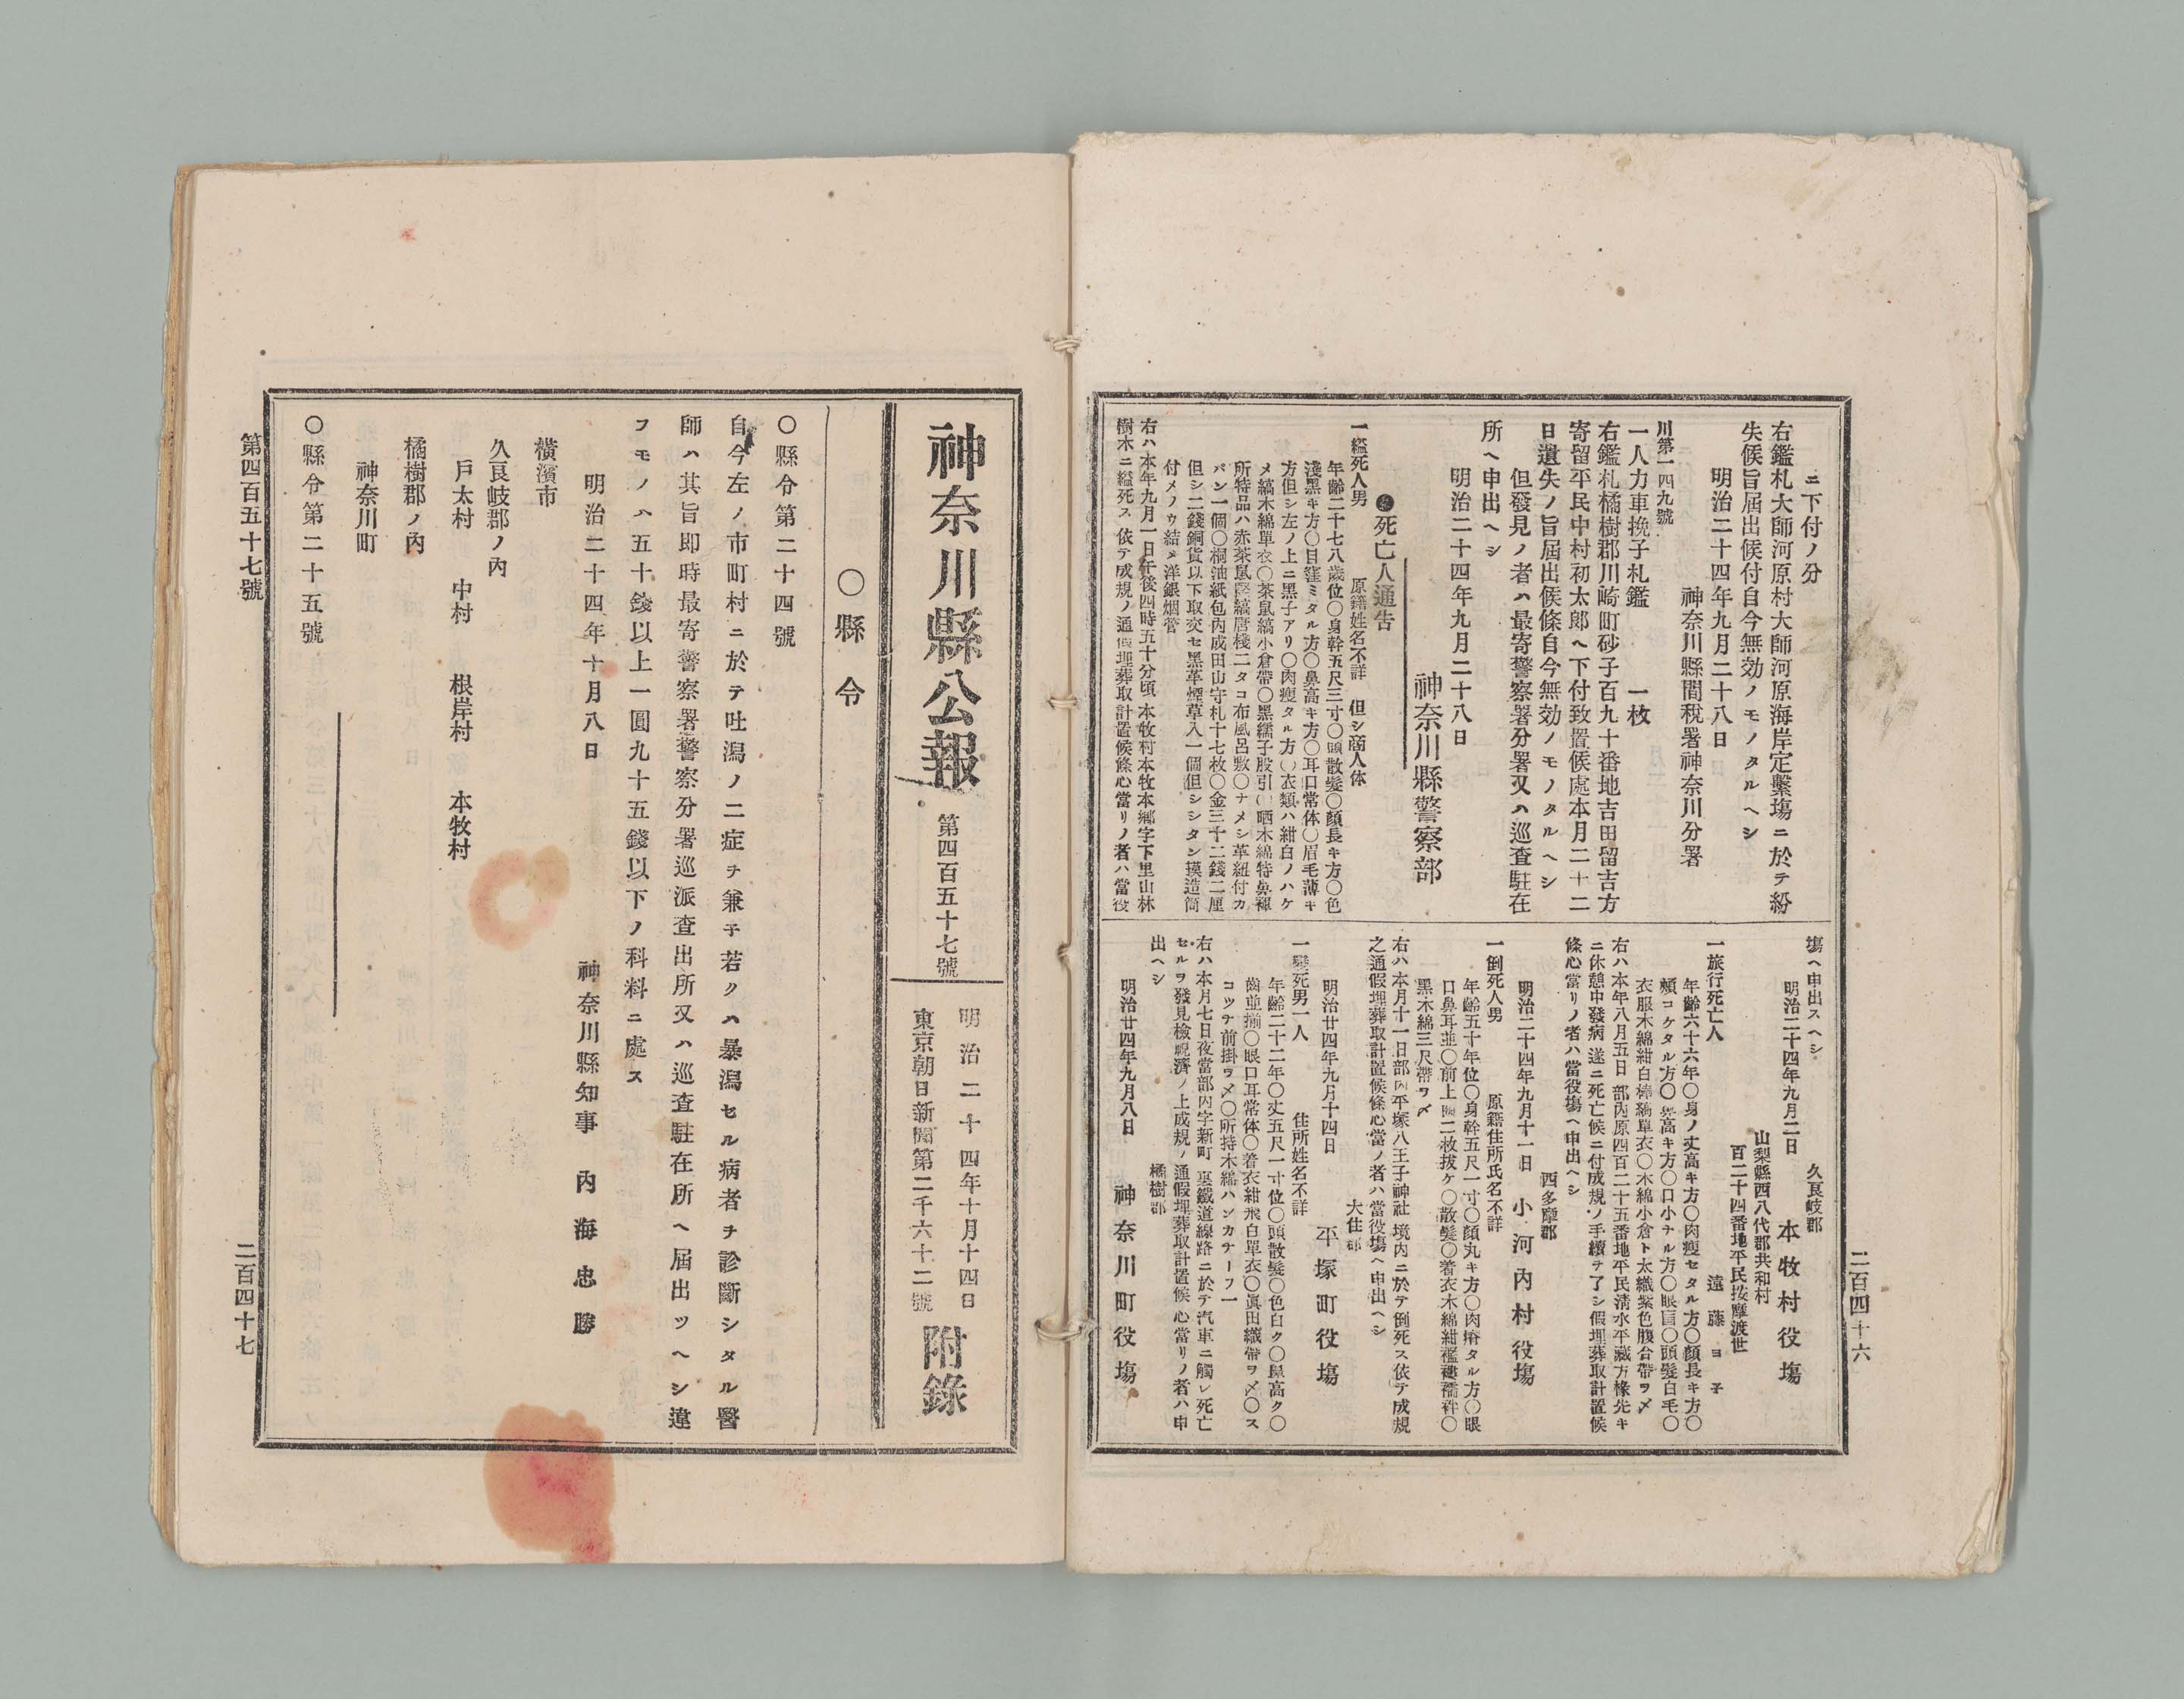 二百四十六
ニ下付ノ分
右鑑札大師河原村大師河原海岸定繫塲ニ於テ紛
失候旨屆出候付自今無効ノモノタルヘシ
明治二十四年九月二十八日
神奈川縣間稅署神奈川分署
川第一四九號
一人力車挽子札鑑 一枚
右鑑札橘樹郡川崎町砂子百九十番地吉田留吉方
寄留平民中村初太郎ヘ下付致置候處本月二十二
日遺失ノ旨屆出候條自今無効ノモノタルヘシ
但發見ノ者ハ最寄警察署分署又ハ巡査駐在
所ヘ申出ヘシ
明治二十四年九月二十八日
神奈川縣警察部
死亡人通告
一縊死人男 原籍姓名不詳 但シ商人体
年齡二十七八歲位〇身幹五尺三寸〇頭散髮〇顏長キ方〇色
淺黑キ方〇目窪ミタル方〇鼻高キ方〇耳口常体〇眉毛薄キ
方但シ左ノ上ニ黑子アリ〇肉瘦タル方〇衣類ハ紺白ノハケ
メ縞木綿單衣〇茶鼠縞小倉帶〇黑繻子股引〇晒木綿特鼻褌
所特品ハ赤茶鼠堅縞唐棧二タコ布風呂敷〇ナメシ革紐付カ
バン一個〇桐油紙包內成田山守札十七枚〇金三十二錢二厘
但シ二錢銅貨以下取交セ黑革煙草入一個但シシタン摸造筒
付メノウ結メ洋銀烟管
右ハ本年九月一日午後四時五十分頃本牧村本牧本鄕字下里山林
樹木ニ縊死ス依テ成規ノ通假埋葬取計置候條心當リノ者ハ當役
塲ヘ申出スヘシ
明治二十四年九月二日
久良岐郡
本牧村役塲
山梨縣西八代郡共和村
百二十四番地平民按摩渡世
一旅行死亡人 遠藤ヨ子
年齡六十六年〇身ノ丈高キ方〇肉瘦セタル方〇顏長キ方〇
頰コケタル方〇鼻高キ方〇口小ナル方〇眼盲〇頭髮白毛〇
衣服木綿紺白棒縞單衣〇木綿小倉ト太織紫色腹合帶ヲ〆
右ハ本年八月五日部內原四百二十五番地平民淸水平藏方椽先キ
ニ休憩中發病遂ニ死亡候ニ付成規ノ手續ヲ了シ假埋葬取計置候
條心當リノ者ハ當役塲ヘ申出ヘシ
西多摩郡
明治二十四年九月十一日 小河內村役塲
一倒死人男 原籍住所氏名不詳
年齡五十年位〇身幹五尺一寸〇顏丸キ方〇肉瘠タル方〇眼
口鼻耳並〇前上齒二枚拔ケ〇散髮〇着衣木綿紺襤褸襦袢〇
黑木綿三尺帶ヲ〆
右ハ本月十一日部內平塚八王子神社境內ニ於テ倒死ス依テ成規
之通假埋葬取計置候條心當ノ者ハ當役塲ヘ申出ヘシ
大住郡
明治廿四年九月十四日 平塚町役塲
一變死男一人 住所姓名不詳
年齡二十二年〇丈五尺一寸位〇頭散髮〇色白ク〇鼻高ク〇
齒並揃〇眼口耳常体〇着衣紺飛白單衣〇眞田織帶ヲ〆〇ス
コツチ前掛ヲ〆〇所持木綿ハンカチーフ一
右ハ本月七日夜當部內字新町裏鐵道線路ニ於テ汽車ニ觸レ死亡
セルヲ發見檢視濟ノ上成規ノ通假埋葬取計置候心當リノ者ハ申
出ヘシ
橘樹郡
明治廿四年九月八日 神奈川町役塲
神奈川縣公報 第四百五十七號
明治二十四年十月十四日
東京朝日新聞第二千六十二號 附錄
〇縣令
〇縣令第二十四號
自今左ノ市町村ニ於テ吐潟ノ二症ヲ兼子若クハ暴潟セル病者ヲ診斷シタル醫
師ハ其旨即時最寄警察署警察分署巡派査出所又ハ巡査駐在所ヘ屆出ツヘシ違
フモノハ五十錢以上一圓九十五錢以下ノ科料ニ處ス
明治二十四年十月八日
神奈川縣知事 內海忠勝
橫濱市
久良岐郡ノ內
戶太村 中村 根岸村 本牧村
橘樹郡ノ內
神奈川町
〇縣令第二十五號
第四百五十七號
二百四十七